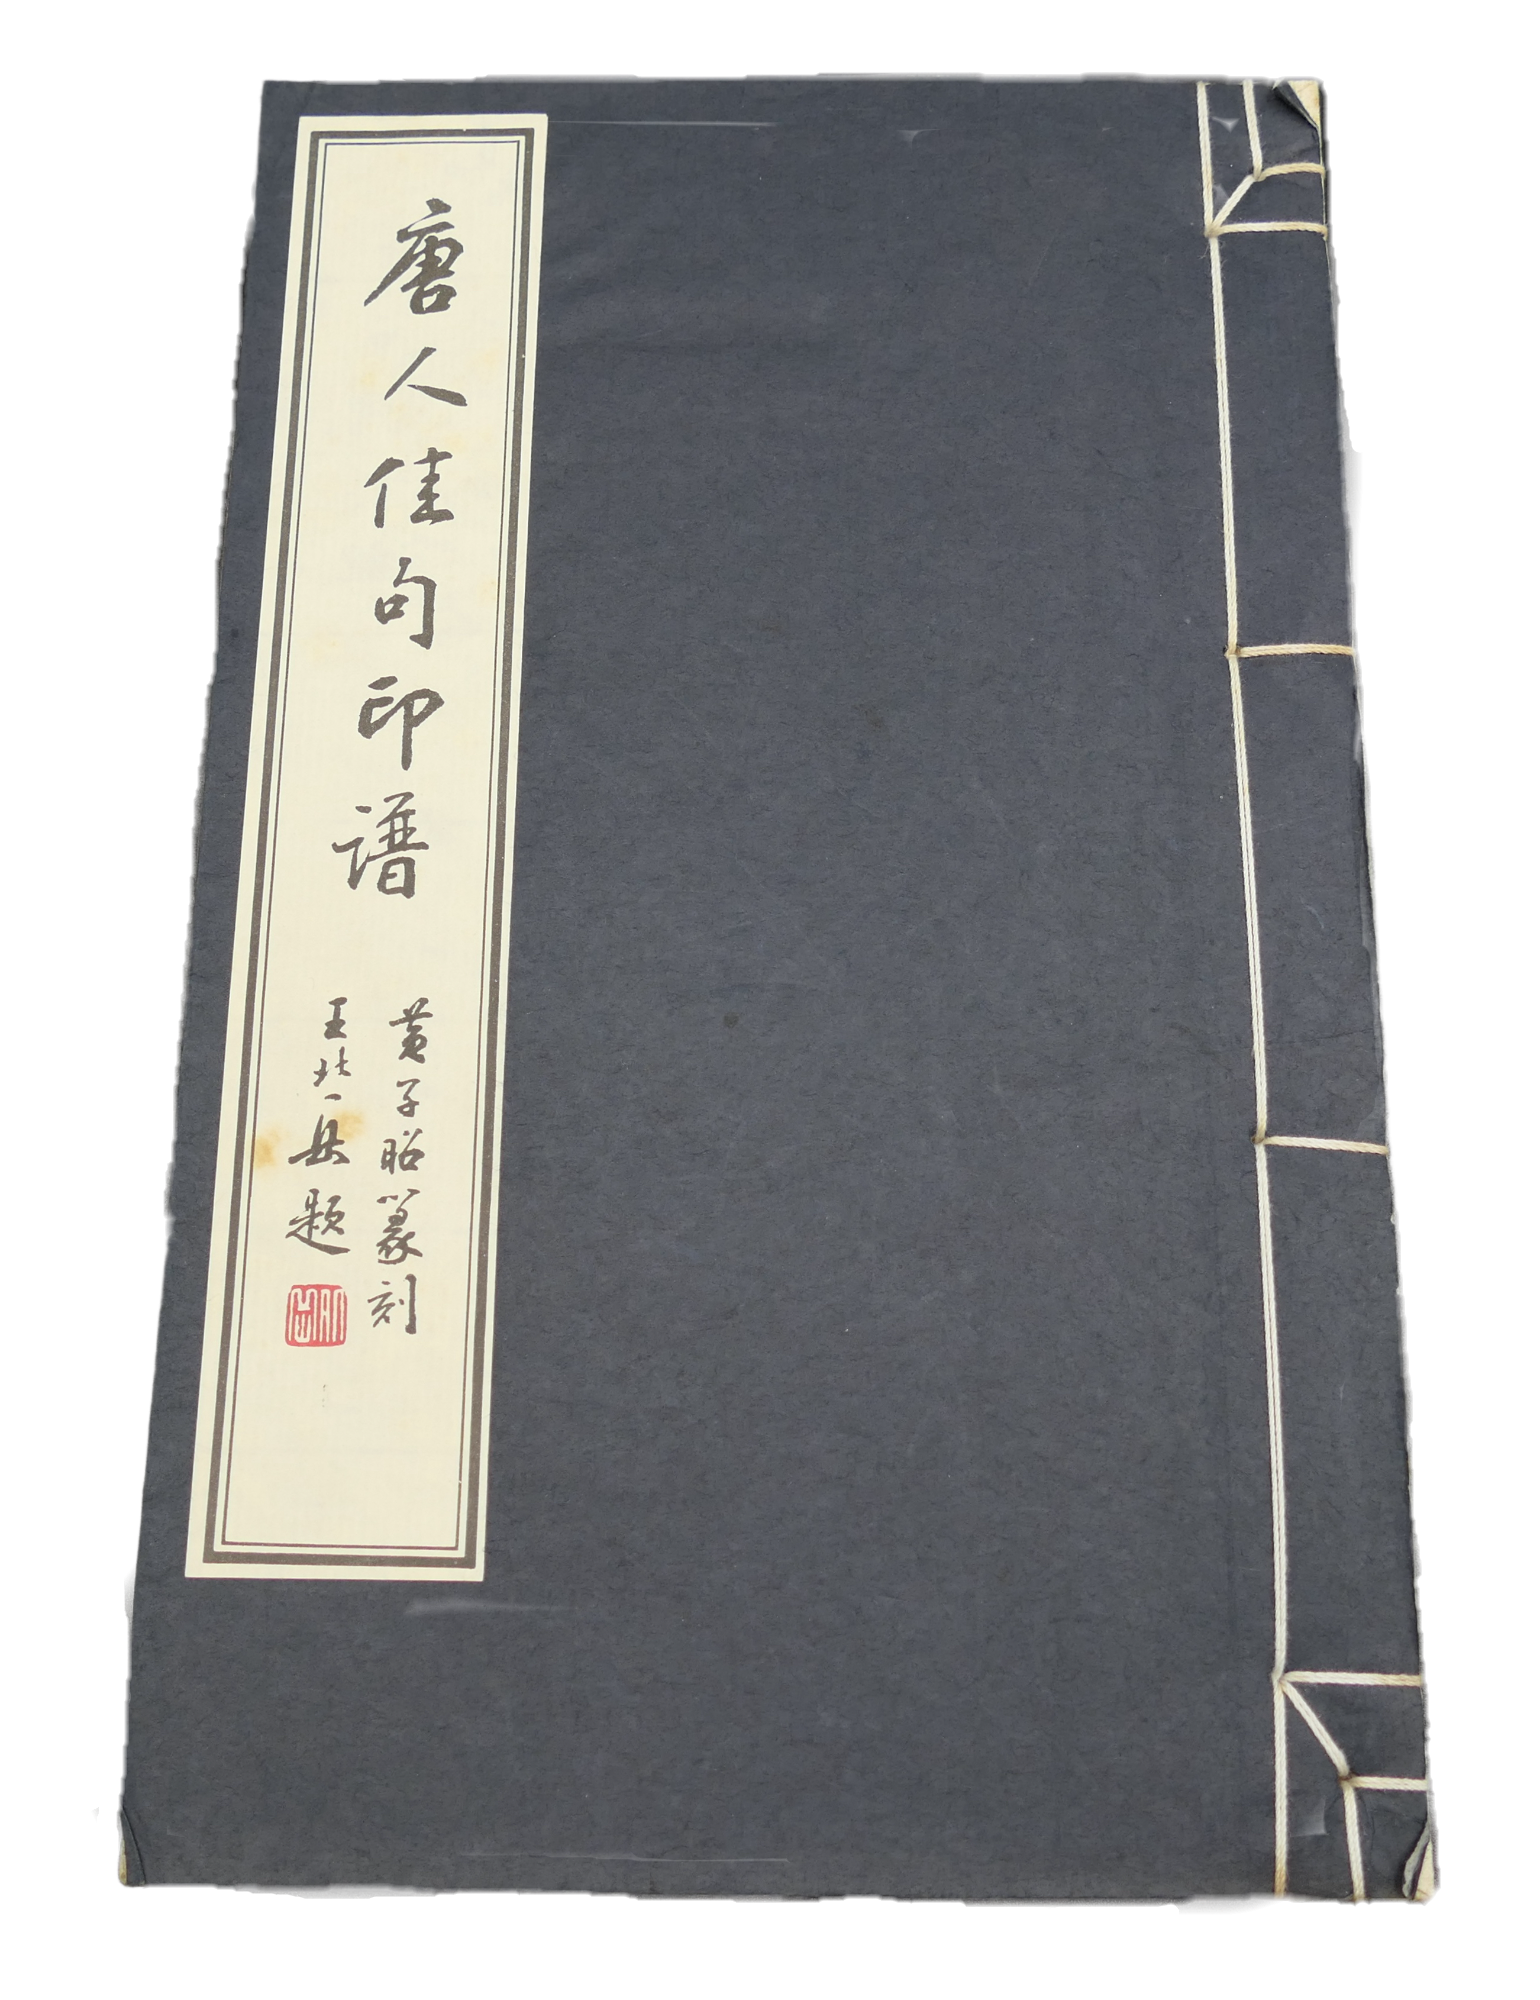 唐人佳句印譜
黄子昭篆刻
王北岳題